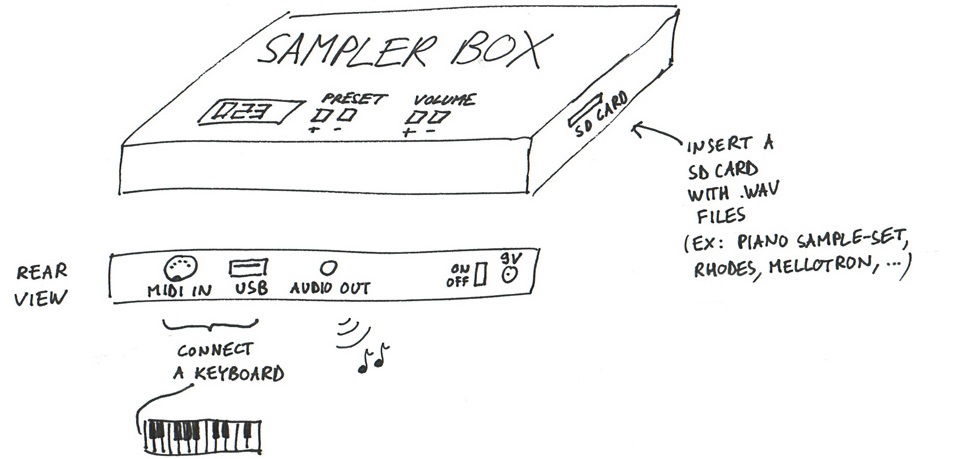 SAMPLER BOX
023
PRESET
VOLUME
+ -
+ -
SD CARD
INSERT A
SD CARD
WITH .WAV
FILES
(EX: PIANO SAMPLE-SET,
RHODES, MELLOTRON, ...)
REAR
VIEW
MIDI IN
USB
AUDIO OUT
ON
OFF
9V
CONNECT
A KEYBOARD